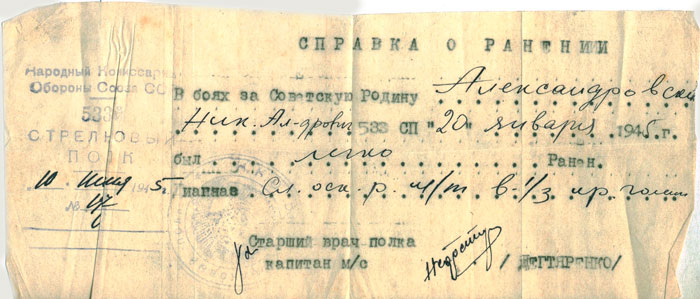 СПРАВКА О РАНЕНИИ
Народный Комиссар
Обороны Союза СС
СТРЕЛКОВЫ
ПОЛК
10 1945г.
№
В боях за Советскую Родину Александровски
Ник. Ал-дрович 533 СП "20" января 1945г.
был легко Ранен.
Диагноз Сл. оск. р. м/т в-1/3 пр. голени
Старший врач полка
капитан м/с /ДЕГТЯРЕНКО/